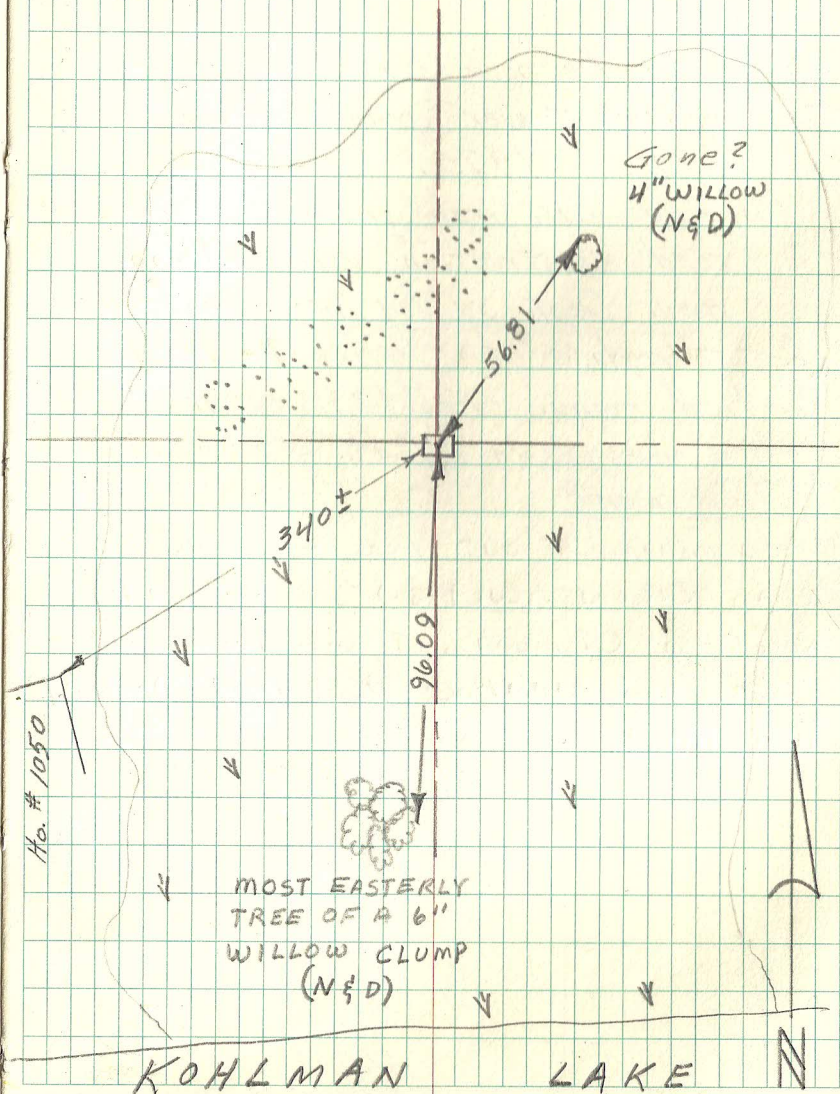 Gone?
4" WILLOW
(N & D)
56.81
340±
96.09
Ho. # 1050
MOST EASTERLY
TREE OF A 6"
WILLOW CLUMP
(N & D)
KOHLMAN LAKE
N